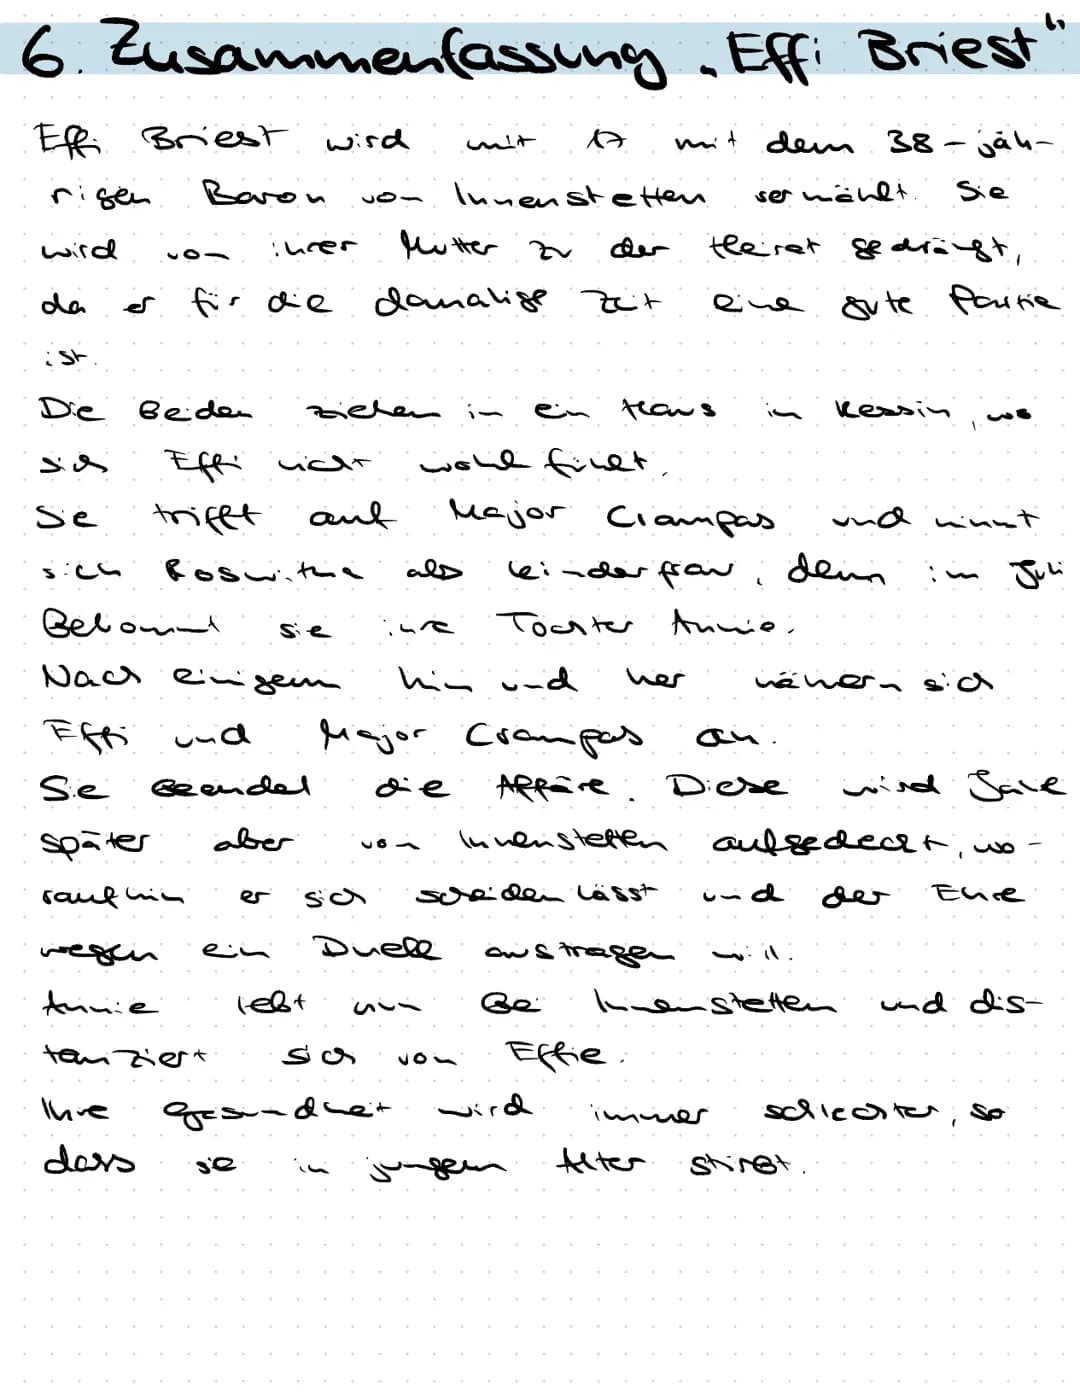 6. Zusammenfassung „Effi Briest"
Effi Briest wird mit 17 mit dem 38-jäh-
rigen Baron von Innenstetten vermählt. Sie
wird von ihrer Mutter zu der Heirat gedrängt,
da er für die damalige Zeit eine gute Partie
ist.
Die Beiden ziehen in ein Haus in Kessin, wo
sich Effi nicht wohl fühlt.
Sie trifft auf Major Crampas und nimmt
sich Roswitha als Kinderfrau, denn im Juli
Bekommt sie ihre Tochter Annie.
Nach einigem hin und her nähern sich
Effi und Major Crampas an.
Sie Beendet die Affäre. Diese wird Jahre
später aber von Innenstetten aufgedeckt, wo-
raufhin er sich scheiden lässt und der Ehre
wegen ein Duell austragen will.
Annie lebt nun Bei Innenstetten und dis-
tanziert sich von Effie.
Ihre gesundheit wird immer schlechter, so
dass sie in jungem Alter stirbt.